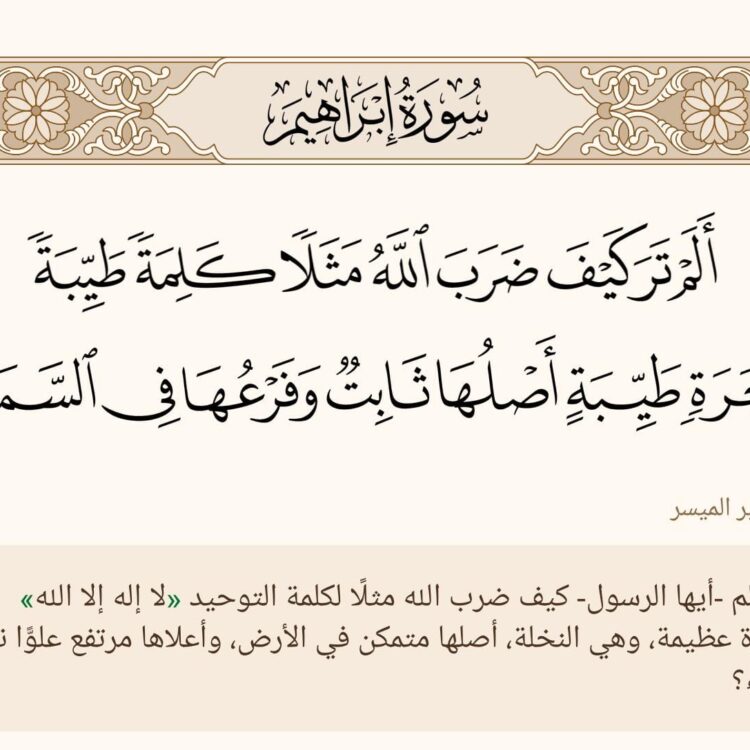 سُورَةُ إِبْرَاهِيمَ
أَلَمْ تَرَ كَيْفَ ضَرَبَ ٱللَّهُ مَثَلًا كَلِمَةً طَيِّبَةً
طَيِّبَةٍ أَصْلُهَا ثَابِتٌ وَفَرْعُهَا فِي
الميسر
-أيها الرسول- كيف ضرب الله مثلًا لكلمة التوحيد «لا إله إلا الله»
عظيمة، وهي النخلة، أصلها متمكن في الأرض، وأعلاها مرتفع علوًّا